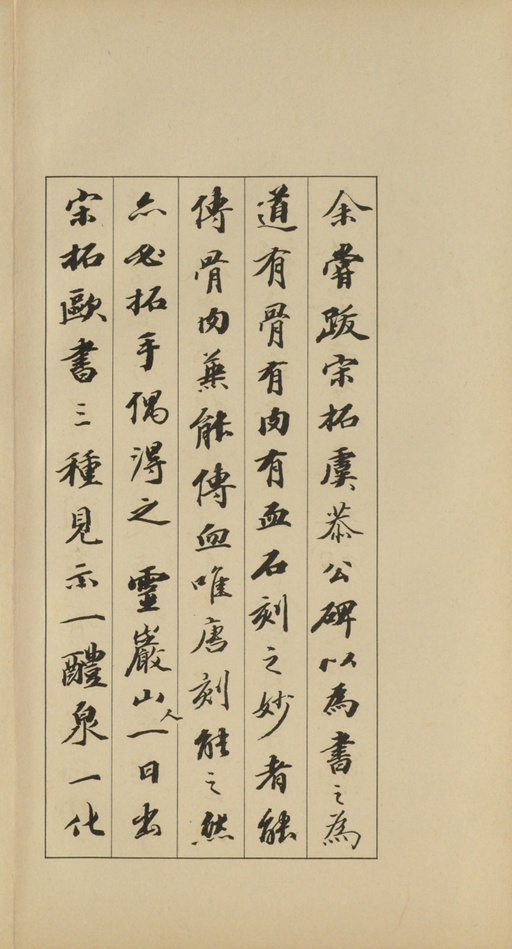 余嘗跋宋拓虞恭公碑以為書之為
道有骨有肉有血石刻之妙者能
傳骨肉兼能傳血唯唐刻能之然
亦必拓手偶得之 靈巖山人一日出
宋拓歐書三種見示一醴泉一化